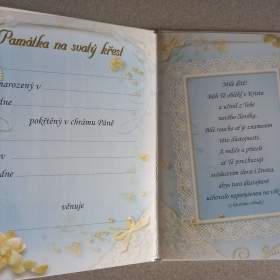 Památka na svatý křest
narozený v
dne
pokřtěný v chrámu Páně
v
dne
věnuje
Milé dítě!
Bůh Tě oblékl v Krista
a učinil z Tebe
nového člověka.
Bílé roucho ať je znamením
této důstojnosti.
A rodiče a přátelé
ať Tě povzbuzují
svědectvím slova i života,
abys tuto důstojnost
uchovalo neporušenou na věky.